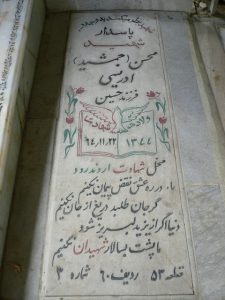 پاسدار
شهید
محسن (جمشید)
ادریسی
فرزند حسین
ولادت شهادت
۱۳۴۴ ۶۴,۱۱,۲۲
محل شهادت اروندرود
ما در ره عشق نقض پیمان نکنیم
گر جان طلبد دریغ از جان نکنیم
دنیا اگر از یزید لبریز شود
ما پشت بسالار شهیدان نکنیم
قطعه ۵۳ ردیف ۶۰ شماره ۳